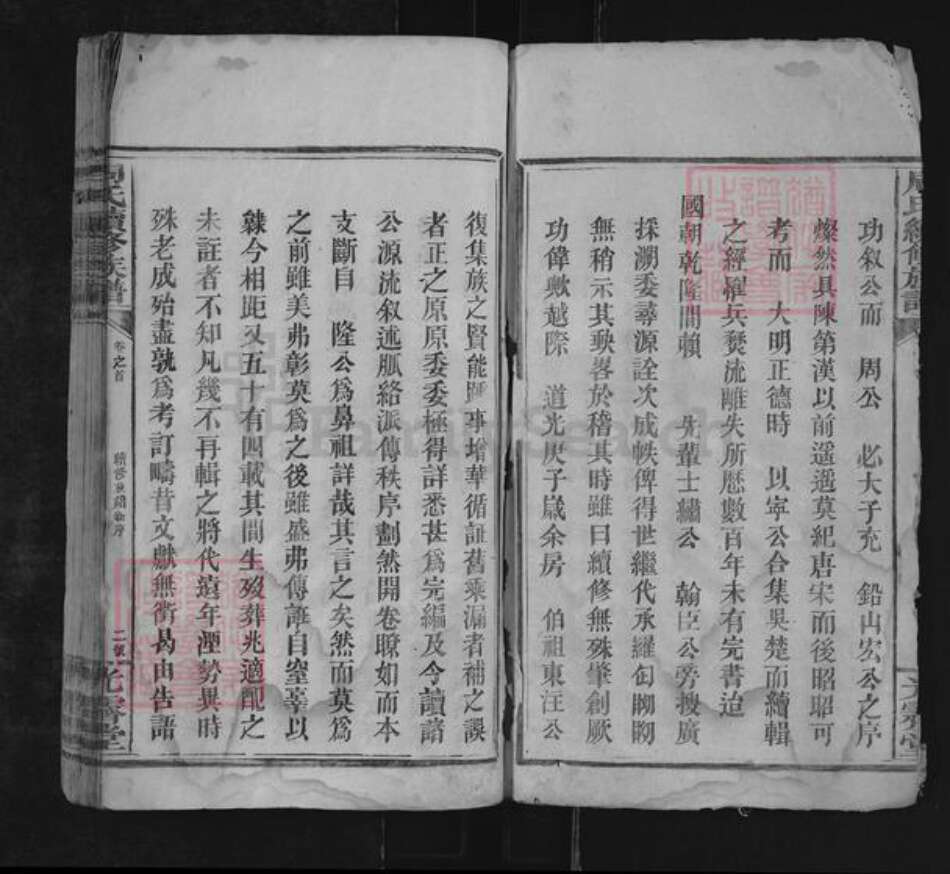 功叙公而 周公 必大子充 鉛山宏公之序
燦然具陳第漢以前遥遥莫紀唐宋而後昭昭可
考而 大明正德時 以寧公合集吳楚而續輯
之經罹兵燹流離失所歷數百年未有完書迨
國朝乾隆間賴 先輩士繡公 翰臣公旁搜廣
採溯委尋源詮次成帙俾得世繼代承羅匈朗朗
無稍示其軼畧於稽其時雖曰續修無殊肇創厥
功偉歟越際 道光庚子歲余房 伯祖東汪公
復集族之賢能踵事增華循証舊乘漏者補之誤
者正之原原委委極得詳悉甚為完編及今讀諸
公源流叙述脈絡派傳秩序劃然開卷瞭如而本
支斷自 隆公為鼻祖詳哉其言之矣然而莫為
之前雖美弗彰莫為之後雖盛弗傳誰自窒辜以
隷今相距又五十有四載其間生歿葬兆適配之
未註者不知凡幾不再輯之將代遠年湮勢異時
殊老成殆盡孰為考訂疇昔文獻無徵曷由告語
周氏續修族譜
卷之首
二
周氏續修族譜